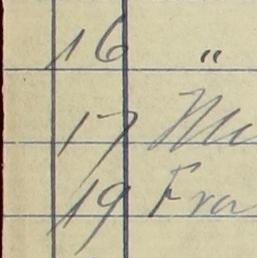 16 "
17 M
19 Fra